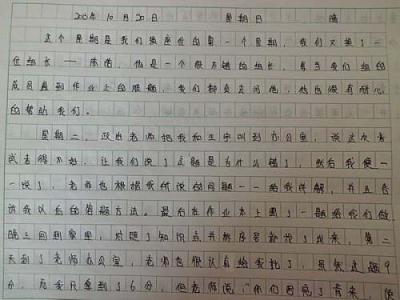 10月20日 星期日 晴
这个星期是我们换座位的第一个星期，我们又换了一
位组长——陈 ，他是一个很 的组长，每当我们组的
成员遇到作业上的难题，我们都去问他，他也很有耐心
的帮助我们。
星期二，政治老师把我和王宇叫到办公里，说这次考
试考得不好，让我们说了这题是为什么错了，然后我便一
一说了，老师也根据我所说的问题一一给我讲解，并且告
诉我以后的答题方法。最后在作业本上圈了一题给我们做，
晚上回到家里， 了知识点并按序号 了出来，第二
天到了老师办公室，老师也很认真给我批了，虽然这题9
分，而我只拿到了6分，但老师说，“你们 了 来，